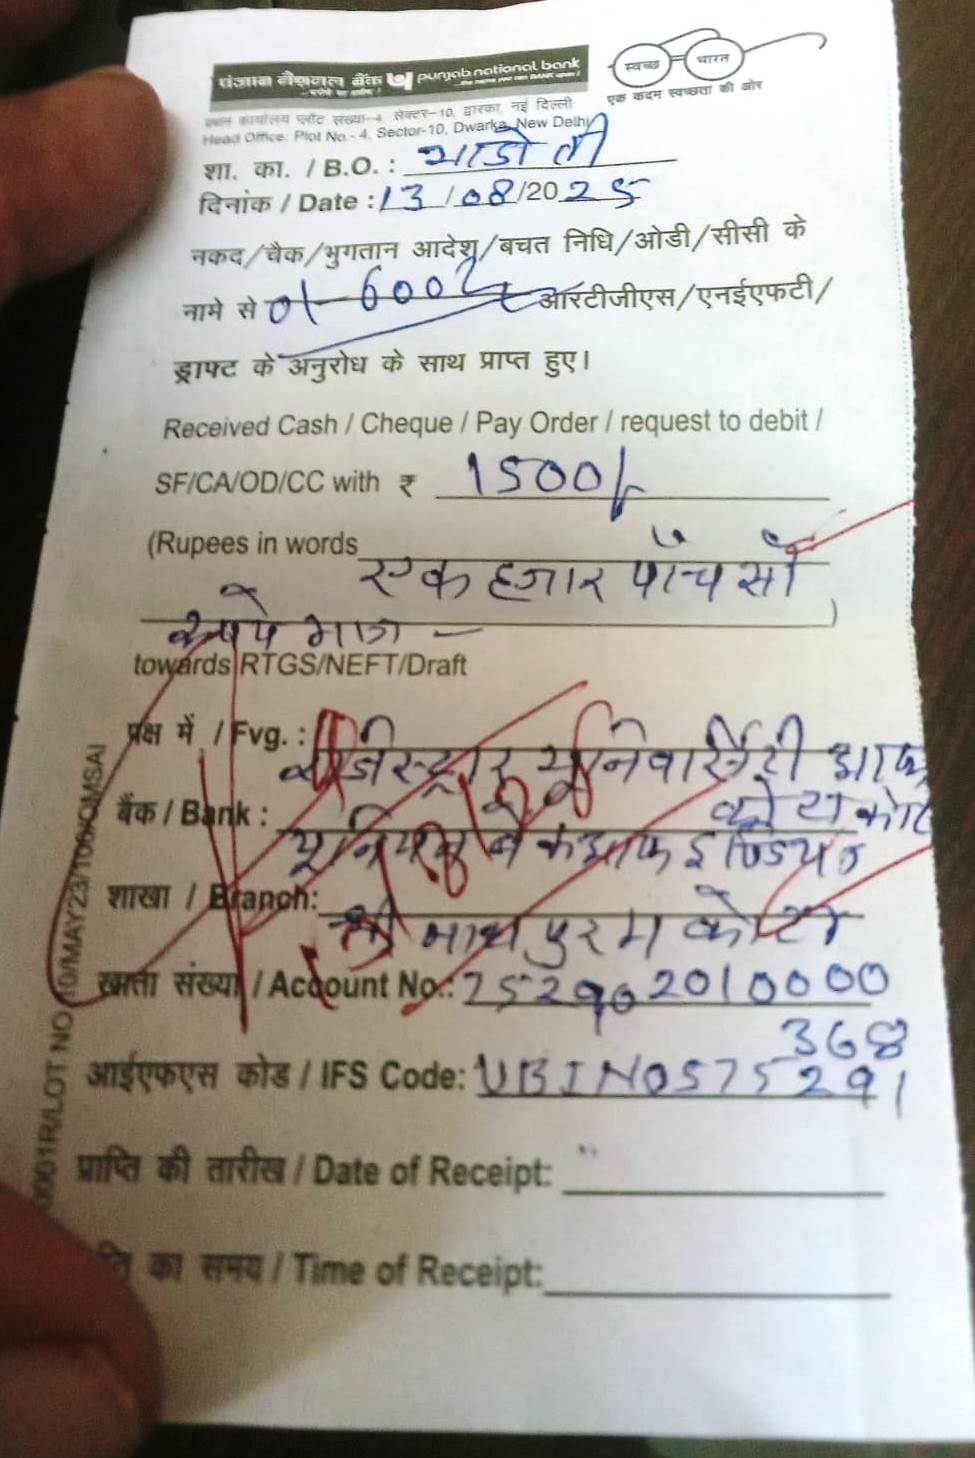 पंजाब नैशनल बैंक punjab national bank
...भरोसे का प्रतीक ! ...the name you can BANK upon !
स्वच्छ भारत
एक कदम स्वच्छता की ओर
प्रधान कार्यालय प्लॉट संख्या-4, सेक्टर-10, द्वारका, नई दिल्ली
Head Office: Plot No.- 4, Sector-10, Dwarka, New Delhi
शा. का. / B.O. :
दिनांक / Date : 13/08/2025
नकद/चैक/भुगतान आदेश/बचत निधि/ओडी/सीसी के
नामे से आरटीजीएस/एनईएफटी/
ड्राफ्ट के अनुरोध के साथ प्राप्त हुए।
Received Cash / Cheque / Pay Order / request to debit /
SF/CA/OD/CC with ₹ 1500/-
(Rupees in words
एक हजार पाँच सौ
रूपये मात्र -)
towards RTGS/NEFT/Draft
पक्ष में / Fvg. :
रजिस्ट्रार यूनिवर्सिटी आफ
कोटा कोटा
बैंक / Bank :
यूनियन बैंक आफ इण्डिया
शाखा / Branch:
श्री नाथ पुरम कोटा
खाता संख्या / Account No.: 752902010000
368
आईएफएस कोड / IFS Code: UBIN0575291
प्राप्ति की तारीख / Date of Receipt:
का समय / Time of Receipt:
0001R/LOT NO 10/MAY23/106/OMSAI